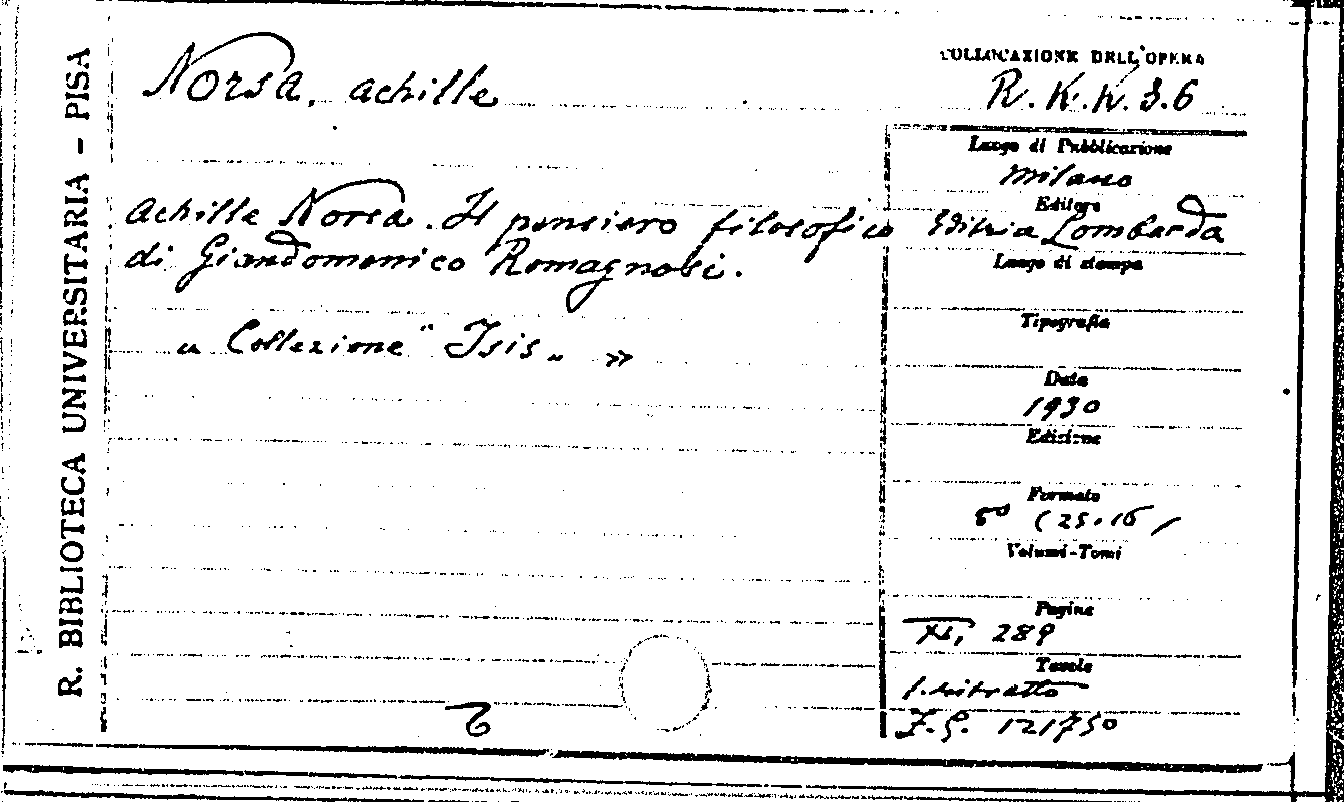 R. BIBLIOTECA UNIVERSITARIA - PISA
Norsa, Achille
COLLOCAZIONE DELL'OPERA
R.K.K.3.6
Achille Norsa. Il pensiero filosofico
di Giandomenico Romagnosi.
« Collezione "Isis„ »
Luogo di Pubblicazione
Milano
Editore
Editria Lombarda
Luogo di stampa
Tipografia
Data
1930
Edizione
Formato
8º (25.16)
Volumi-Tomi
Pagine
XI, 289
Tavole
1. ritratto
I.G. 121750